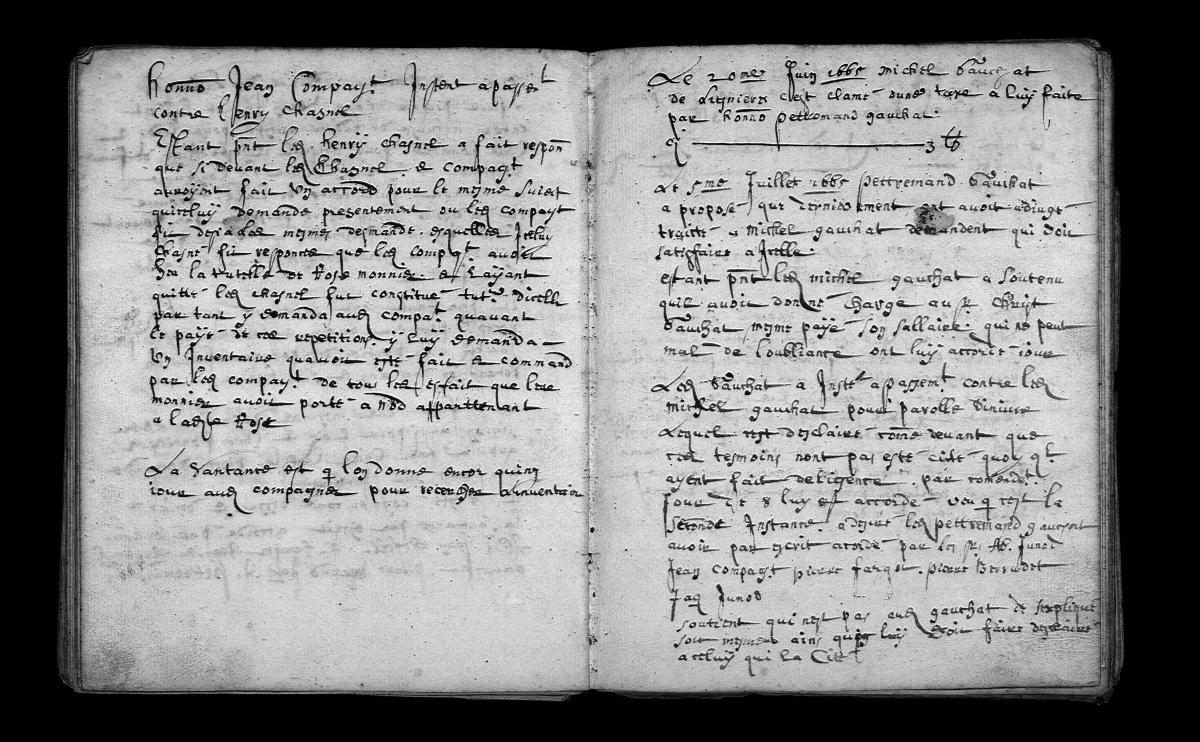 honno Jean Compagt Instent a passet
contre henry chasnel
Estant pnt led henry chasnel a fait respon
que si devant led Chasnel & compagt
avoyent fait un accord pour le mesme suiect
quiceluy demande presentement ou led compagt
fit desia les mesmes desmande esquelles Iceluy
chasnel fit responce que led compagt avoit
heu la tutelle de Rose monnier & layant
quitté led chasnel fut constitué tutr dicelle
partant y demanda aud compat quavant
le payé de ces repetition y luy demanda
un Inventaire quavoit esté fait & command
par led compagt de tous les esfait que lere
monnier avoit porté a apparttenant
a ladte Rose
La santance est q lon donne encor quinz
iour aud compagnet pour recercher linventair
Le 20me Juin 1665 michel gauchat
de Lignieres cest clamé dune taxe a luy faite
par honno pettremand gauchat
cy 3 lb
Le 5me Juillet 1665 pettremand gauchat
a proposé que dernierement ont avoit adiugé
traitte a michel gauchat demandent qui doit
satisfaire a Icelle
estant pnt led michel gauchat a soutenu
quil avoit donné charge au sr Christ
gauchat mesme payé son sallaire qui ne peut
mal de loubliance ont luy accorde iour
Led gauchat a Instet a passemt contre led
michel gauchat pour parolle diniure
Lequel cest desclairé come devant que
ces tesmoins nont pas esté cité quoy qt
ayent fait deligence par comendt
Jour de 8 luy est accordé veu q cest la
seconde Instance a desiré led pettremand gauchat
avoir par escrit acordé par les srs Ab. Junod
Jean Compagt pierre farqot pierre Berrudet
Jaq Junod
soutient qui nest pas aud gauchat de sexpliqué
soit mesmes ains quest luy doit faire desclairé
a celuy qui la Cité